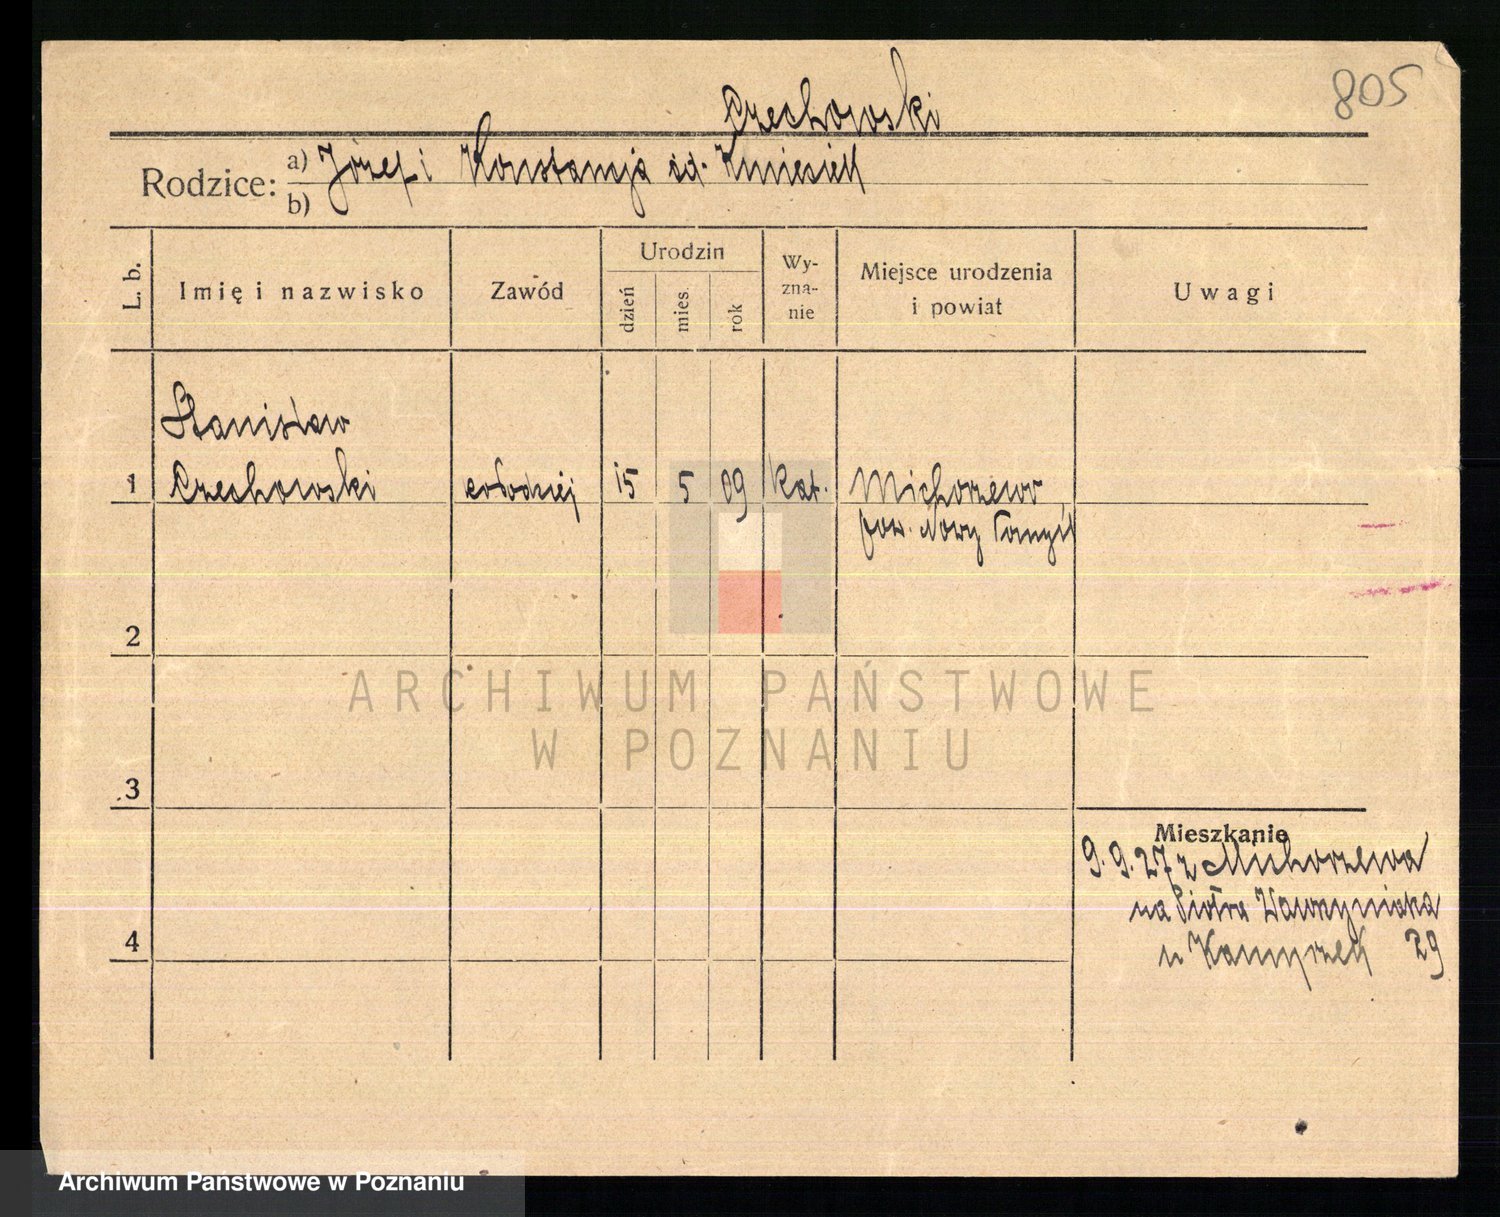 805
Czechowski
Rodzice: a) Józef i Konstancja
b)
L. b.
Imię i nazwisko
Zawód
Urodzin
dzień
mies.
rok
Wy-
zna-
nie
Miejsce urodzenia
i powiat
Uwagi
Stanisław
1 Czechowski kołodziej 15 5 09 kat. Michorzewo
pow. Nowy Tomyśl
2
3
4
Mieszkanie
9.9.27 z Michorzewa
na Piotra Wawrzyniaka
29
ARCHIWUM PAŃSTWOWE
W POZNANIU
Archiwum Państwowe w Poznaniu